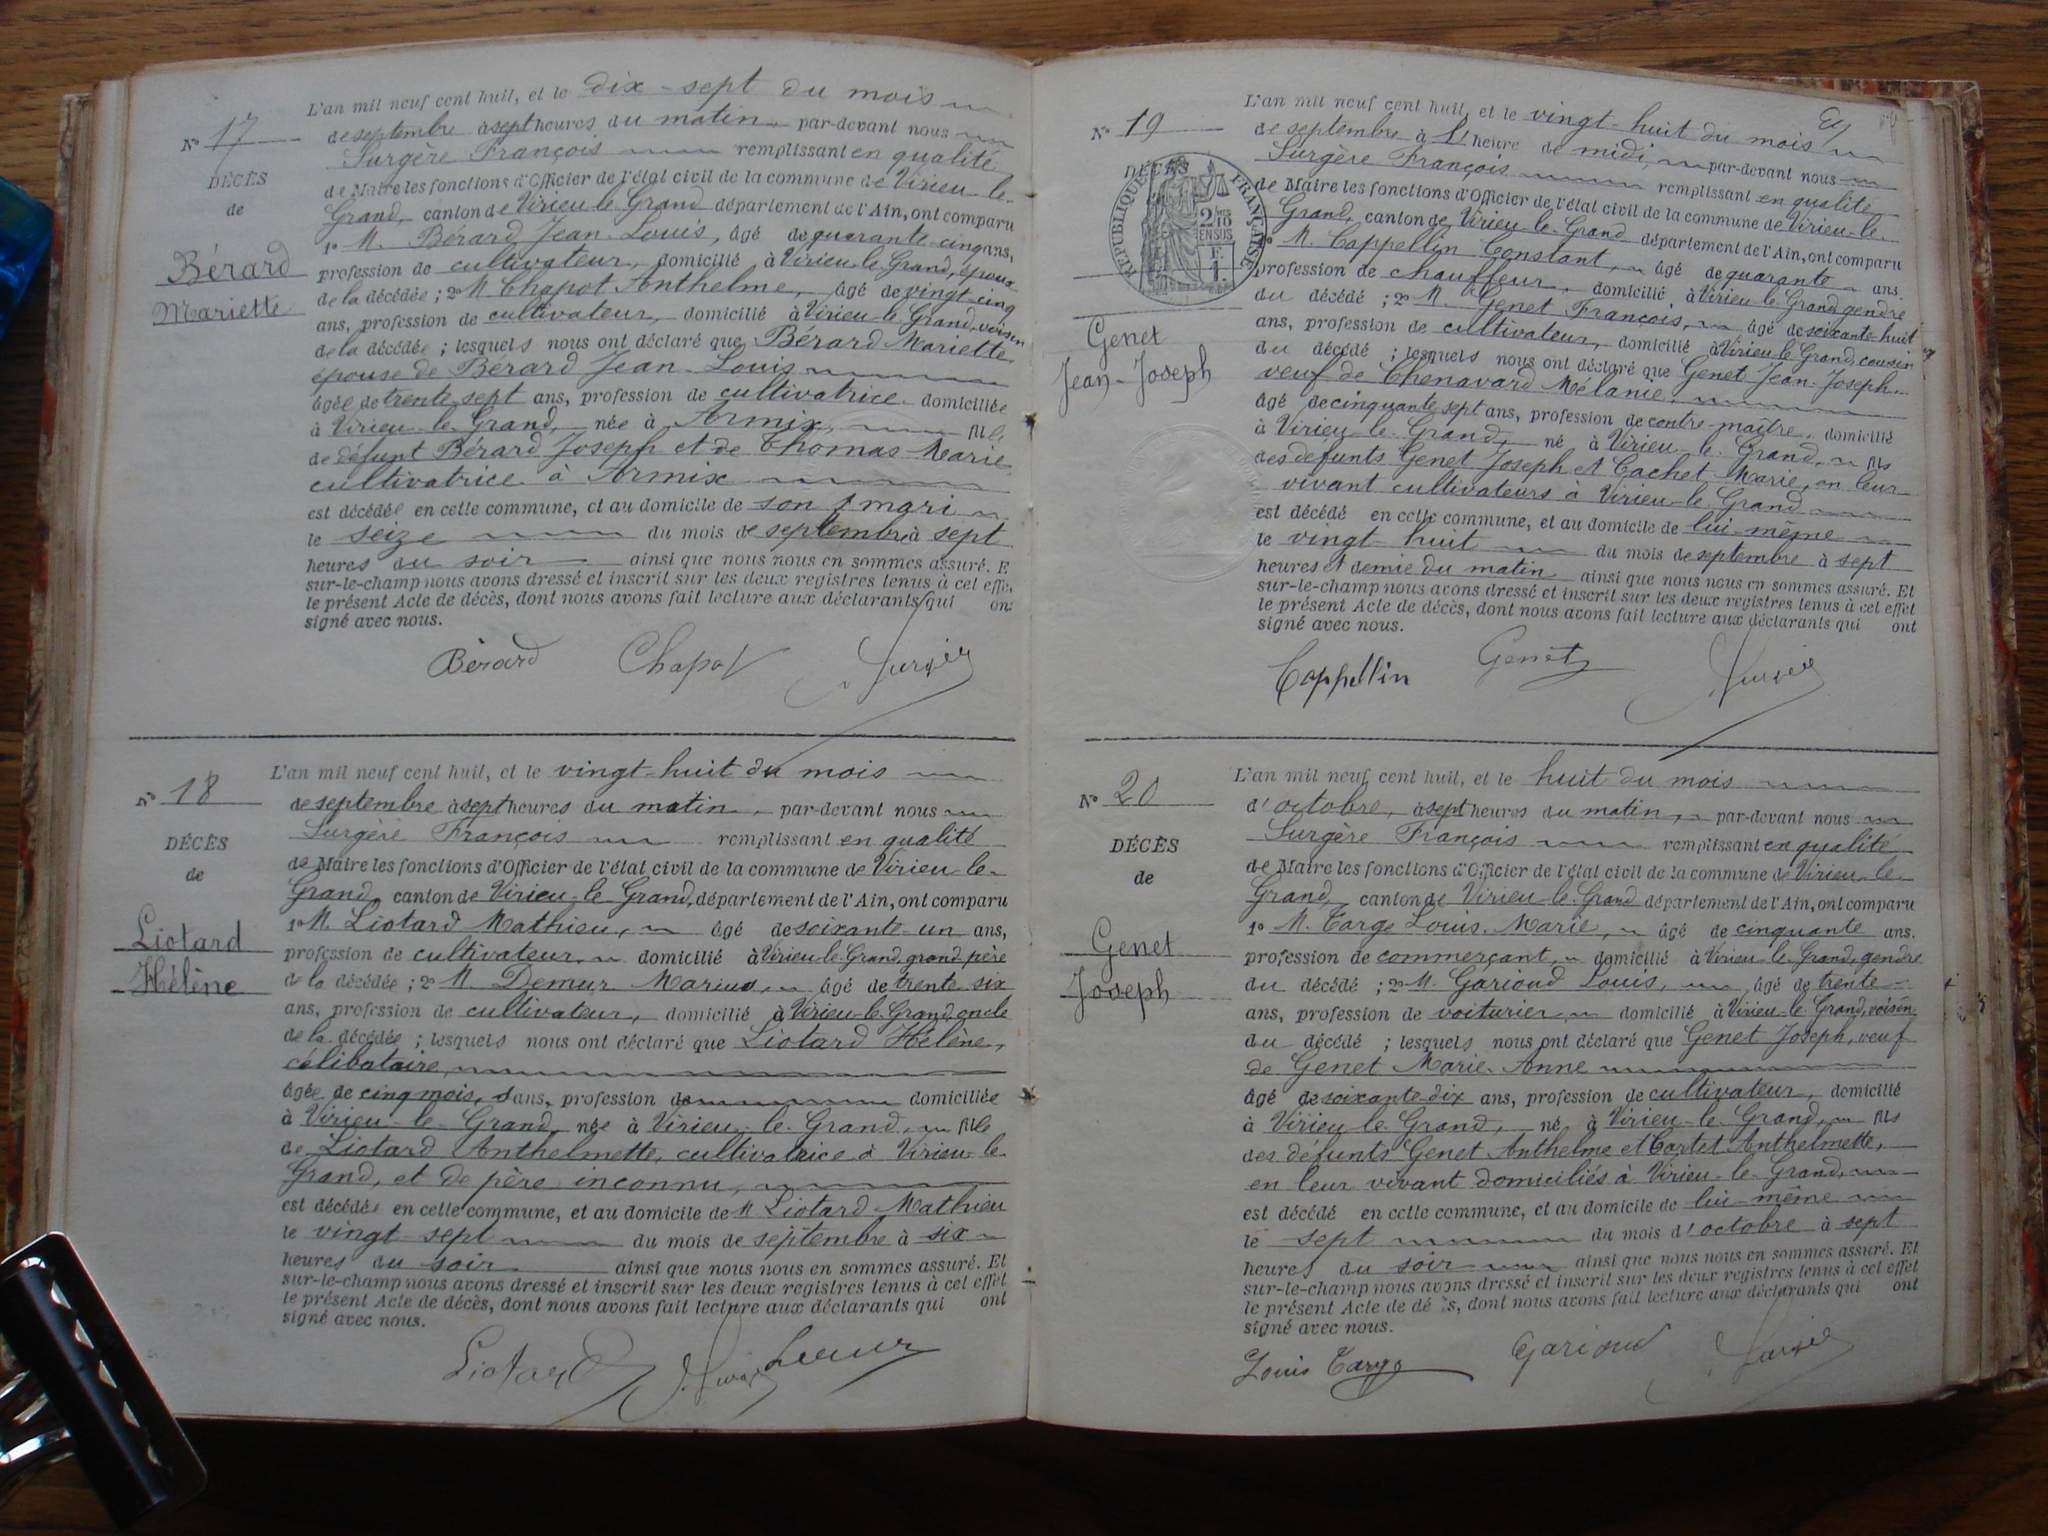 L'an mil neuf cent huit, et le dix-sept du mois
N° 17 de septembre à sept heures du matin, par-devant nous
Surgère François remplissant en qualité
DÉCÈS de Maire les fonctions d'Officier de l'état civil de la commune de Virieu-le-
de Grand, canton de Virieu-le-Grand département de l'Ain, ont comparu
1° M. Bérard Jean-Louis, âgé de quarante-cinq ans,
Bérard profession de cultivateur, domicilié à Virieu-le-Grand, époux
Mariette de la décédée ; 2° M. Chapot Anthelme, âgé de vingt-cinq
ans, profession de cultivateur, domicilié à Virieu-le-Grand, voisin
de la décédée ; lesquels nous ont déclaré que Bérard Mariette
épouse de Bérard Jean-Louis
âgée de trente-sept ans, profession de cultivatrice domiciliée
à Virieu-le-Grand, née à Armix, fille
de défunt Bérard Joseph et de Thomas Marie
cultivatrice à Armix
est décédée en cette commune, et au domicile de son mari
le seize du mois de septembre à sept
heures du soir ainsi que nous nous en sommes assuré. E
sur-le-champ nous avons dressé et inscrit sur les deux registres tenus à cet effe
le présent Acte de décès, dont nous avons fait lecture aux déclarants qui on
signé avec nous.
Bérard Chapot Surgère
L'an mil neuf cent huit, et le vingt-huit du mois
N° 18 de septembre à sept heures du matin, par-devant nous
Surgère François remplissant en qualité
DÉCÈS de Maire les fonctions d'Officier de l'état civil de la commune de Virieu-le-
de Grand, canton de Virieu-le-Grand, département de l'Ain, ont comparu
Liotard 1° M. Liotard Mathieu, âgé de soixante-un ans,
Hélène profession de cultivateur, domicilié à Virieu-le-Grand, grand père
de la décédée ; 2° M. Demur Marius, âgé de trente six
ans, profession de cultivateur, domicilié à Virieu-le-Grand, oncle
de la décédée ; lesquels nous ont déclaré que Liotard Hélène,
célibataire,
âgée de cinq mois, ans, profession de domiciliée
à Virieu-le-Grand, née à Virieu-le-Grand, fille
de Liotard Anthelmette, cultivatrice à Virieu-le-
Grand, et de père inconnu,
est décédée en cette commune, et au domicile de M Liotard Mathieu
le vingt sept du mois de septembre à six
heures du soir ainsi que nous nous en sommes assuré. Et
sur-le-champ nous avons dressé et inscrit sur les deux registres tenus à cet effet
le présent Acte de décès, dont nous avons fait lecture aux déclarants qui ont
signé avec nous.
Liotard Surgère Demur
L'an mil neuf cent huit, et le vingt-huit du mois
N° 19 de septembre à l' heure de midi, par-devant nous
Surgère François remplissant en qualité
DÉCÈS de Maire les fonctions d'Officier de l'état civil de la commune de Virieu-le-
RÉPUBLIQUE FRANÇAISE
2/10 EN SUS
F. 1.
Grand, canton de Virieu-le-Grand département de l'Ain, ont comparu
1° M. Cappellin Constant, âgé de quarante ans,
profession de chauffeur, domicilié à Virieu-le-Grand, gendre
Genet du décédé ; 2° M. Genet François, âgé de soixante-huit
Jean-Joseph ans, profession de cultivateur, domicilié à Virieu-le-Grand, cousin
du décédé ; lesquels nous ont déclaré que Genet Jean-Joseph
veuf de Chenavard Mélanie,
âgé de cinquante sept ans, profession de contre-maître, domicilié
à Virieu-le-Grand, né à Virieu-le-Grand, fils
des défunts Genet Joseph et Cachet Marie, en leur
vivant cultivateurs à Virieu-le-Grand
est décédé en cette commune, et au domicile de lui-même
le vingt-huit du mois de septembre à sept
heures et demie du matin ainsi que nous nous en sommes assuré. Et
sur-le-champ nous avons dressé et inscrit sur les deux registres tenus à cet effet
le présent Acte de décès, dont nous avons fait lecture aux déclarants qui ont
signé avec nous.
Cappellin Genet Surgère
L'an mil neuf cent huit, et le huit du mois
N° 20 d'octobre, à sept heures du matin, par-devant nous
Surgère François remplissant en qualité
DÉCÈS de Maire les fonctions d'Officier de l'état civil de la commune de Virieu-le-
de Grand, canton de Virieu-le-Grand département de l'Ain, ont comparu
Genet 1° M. Targe Louis-Marie, âgé de cinquante ans,
Joseph profession de commerçant, domicilié à Virieu-le-Grand, gendre
du décédé ; 2° M. Garioud Louis, âgé de trente
ans, profession de voiturier, domicilié à Virieu-le-Grand, voisin
du décédé ; lesquels nous ont déclaré que Genet Joseph, veuf
de Genet Marie-Anne
âgé de soixante-dix ans, profession de cultivateur, domicilié
à Virieu-le-Grand, né à Virieu-le-Grand, fils
des défunts Genet Anthelme et Cartet Anthelmette,
en leur vivant domiciliés à Virieu-le-Grand,
est décédé en cette commune, et au domicile de lui-même
le sept du mois d'octobre à sept
heures du soir ainsi que nous nous en sommes assuré. Et
sur-le-champ nous avons dressé et inscrit sur les deux registres tenus à cet effet
le présent Acte de dé ès, dont nous avons fait lecture aux déclarants qui ont
signé avec nous.
Louis Targe Garioud Surgère